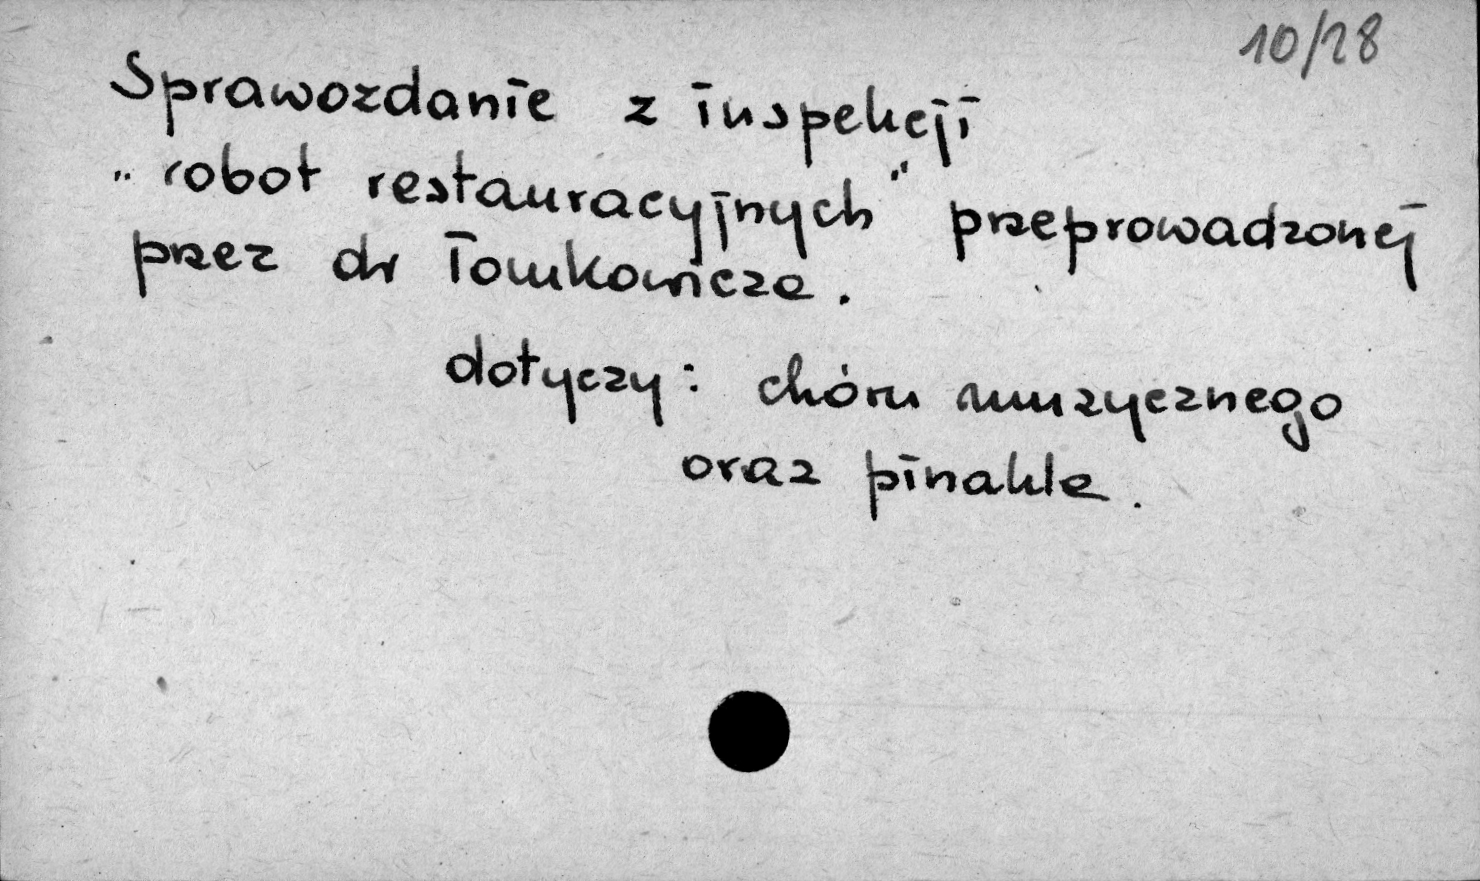 10/28
Sprawozdanie z inspekcji
"robot restauracyjnych" przeprowadzonej
przez dr Tomkowicza.
dotyczy: chóru muzycznego
oraz pinakla.